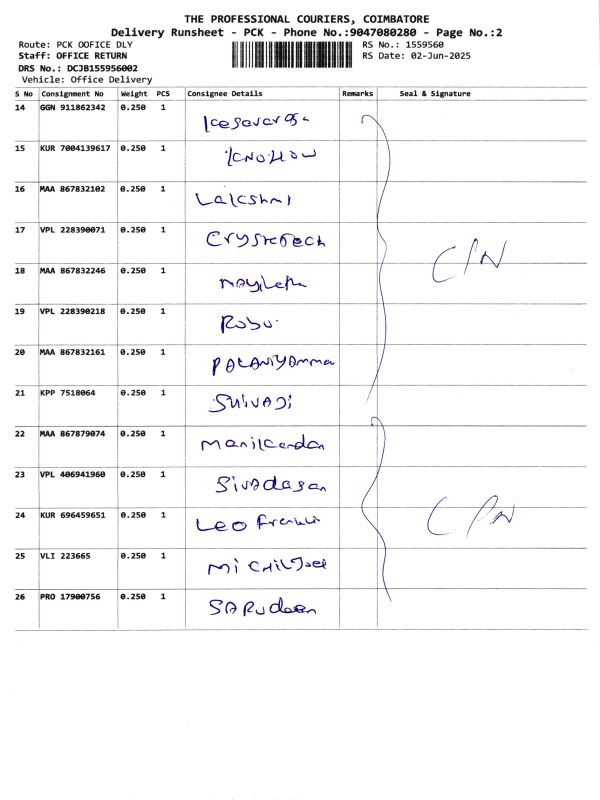 THE PROFESSIONAL COURIERS, COIMBATORE
Delivery Runsheet - PCK - Phone No.:9047080280 - Page No.:2
Route: PCK OOFICE DLY RS No.: 1559560
Staff: OFFICE RETURN RS Date: 02-Jun-2025
DRS No.: DCJB155956002
Vehicle: Office Delivery
S No Consignment No Weight PCS Consignee Details Remarks Seal & Signature
14 GGN 911862342 0.250 1
15 KUR 7004139617 0.250 1 KNOHOW
16 MAA 867832102 0.250 1 Lakshmi
17 VPL 228390071 0.250 1 CrysteTech C/N
18 MAA 867832246 0.250 1
19 VPL 228390218 0.250 1 Robu
20 MAA 867832161 0.250 1 PALANiYAmma
21 KPP 7518064 0.250 1 SHiVAJi
22 MAA 867879074 0.250 1 Manikandan
23 VPL 406941960 0.250 1 Sivadasan
24 KUR 696459651 0.250 1 LEO C/N
25 VLI 223665 0.250 1 MiCHilJoel
26 PRO 17900756 0.250 1 SARudeen